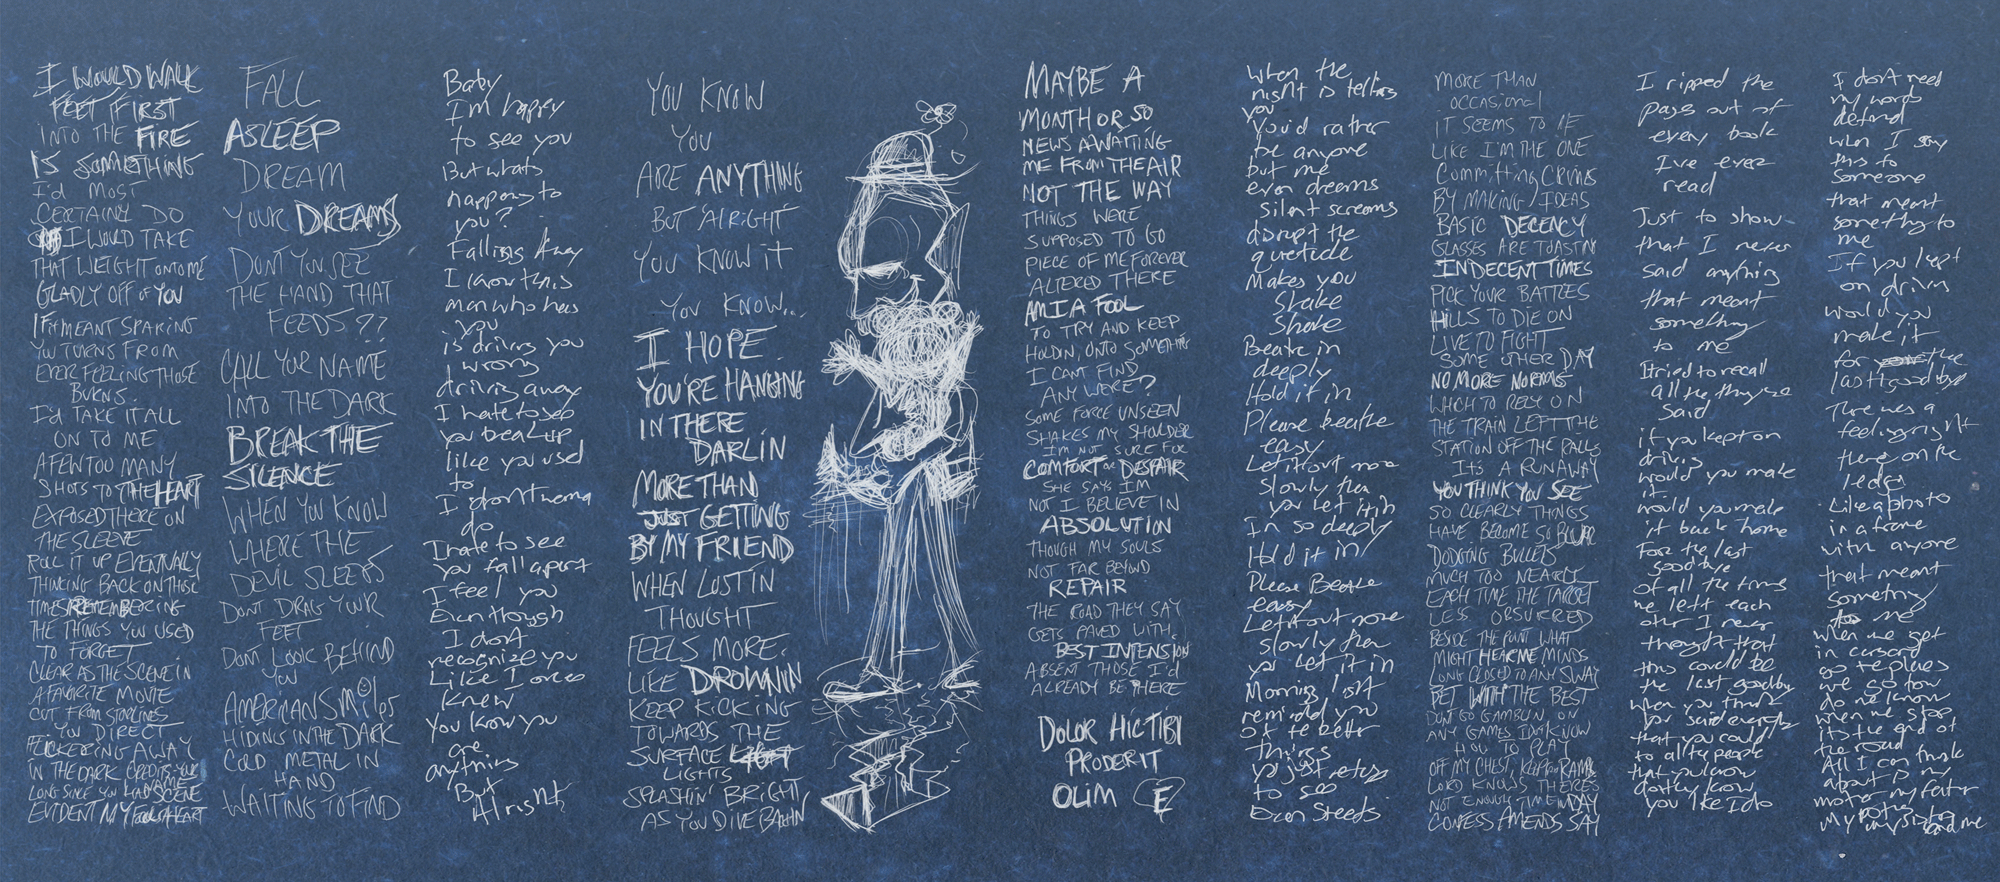 I WOULD WALK
FEET FIRST
INTO THE FIRE
IS SOMETHING
I'd MOST
CERTAINLY DO
I WOULD TAKE
THAT WEIGHT ONTO ME
GLADLY OFF OF YOU
IF IT MEANT SPARING
YOU TURNS FROM
EVER FEELING THOSE
BURNS.
I'd TAKE IT ALL
ON TO ME
A FEW TOO MANY
SHOTS TO THE HEART
EXPOSED THERE ON
THE SLEEVE
ROLL IT UP EVENTUALLY
THINKING BACK ON THOSE
TIMES REMEMBERING
THE THINGS YOU USED
TO FORGET
CLEAR AS THE SCENE IN
A FAVORITE MOVIE
CUT FROM STORLINES
YOU DIRECT
FLICKERING AWAY
IN THE DARK CREDITS
LONG SINCE YOU HAD SCENE
EVIDENT MY HEART
FALL
ASLEEP
DREAM
YOUR DREAMS
DONT YOU SEE
THE HAND THAT
FEEDS??
CALL YOUR NAME
INTO THE DARK
BREAK THE
SILENCE
WHEN YOU KNOW
WHERE THE
DEVIL SLEEPS
DONT DRAG YOUR
FEET
DONT LOOK BEHIND
YOU
AMERICAN SMiles
HIDING IN THE DARK
COLD METAL IN
HAND
WAITING TO FIND
Baby
I'm happy
to see you
But whats
happening to
you?
Falling Away
I know this
man who has
you
is driving you
wrong
driving away
I hate to see
you break up
like you used
to
I don't wanna
do
I hate to see
you fall apart
I feel you
Even though
I don't
recognize you
Like I once
knew
You know you
are
anything
But
Alright
YOU KNOW
YOU
ARE ANYTHING
BUT 'ALRIGHT'
YOU KNOW iT
YOU KNOW...
I HOPE
YOU'RE HANGING
IN THERE
DARLIN
MORE THAN
JUST GETTING
BY MY FRIEND
WHEN LOST IN
THOUGHT
FEELS MORE
LIKE DROWNIN
KEEP KICKING
TOWARDS THE
SURFACE LIGHT
LIGHTS
SPLASHIN' BRIGHT
AS YOU DIVE BACK IN
MAYBE A
MONTH OR SO
NEWS AWAITING
ME FROM THE AIR
NOT THE WAY
THINGS WERE
SUPPOSED TO GO
PIECE OF ME FOREVER
ALTERED THERE
AM I A FOOL
TO TRY AND KEEP
HOLDIN, ONTO SOMETHING
I CANT FIND
ANY WERE?
SOME FORCE UNSEEN
SHAKES MY SHOULDER
I'M NOT SURE FOR
COMFORT or DESPAIR
SHE SAYS I'M
NOT I BELIEVE IN
ABSOLUTION
THOUGH MY SOULS
NOT FAR BEYOND
REPAIR
THE ROAD THEY SAY
GETS PAVED WITH
BEST INTENSION
ABSENT THOSE I'd
ALREADY BE THERE
DOLOR HIC TIBI
PRODERIT
OLIM E
When the
night is telling
you
You'd rather
be anyone
but me
even dreams
silent screams
disrupt the
quietide
Makes you
Shake
Shake
Beathe in
deeply
Hold it in
Please beathe
easy
Let it out more
slowly then
you let it in
In so deeply
Hold it in
Please Beathe
easy
Let it out more
slowly then
you let it in
Morning light
remind you
of the better
things
you just refuse
to see
Even Steeds
MORE THAN
occasional
IT SEEMS TO BE
LIKE I'M THE ONE
Committing CRIMES
BY MAKING IDEAS
BASIC DECENCY
GLASSES ARE TOASTIN
INDECENT TIMES
PICK YOUR BATTLES
HILLS TO DIE ON
LIVE TO FIGHT
SOME OTHER DAY
NO MORE NORMS
WHICH TO RELY ON
THE TRAIN LEFT THE
STATION OFF THE RAILS
ITS A RUNAWAY
YOU THINK YOU SEE
SO CLEARLY THINGS
HAVE BECOME SO
DODGING BULLETS
MUCH TOO NEARLY
EACH TIME THE TARGET
LESS OBSCURRED
BESIDE THE POINT WHAT
MIGHT HEAR ME MINDS
LONG CLOSED TO ANY SWAY
BET WITH THE BEST
DONT GO GAMBLIN ON
ANY GAMES I DONT KNOW
HOW TO PLAY
OFF MY CHEST, KEEP
LORD KNOWS THERES
NOT ENOUGH TIME IN DAY
CONFESS AMENDS SAY
I ripped the
pages out of
every book
I've ever
read
Just to show
that I never
said anything
that meant
something
to me
I tried to recall
all the they've
said
if you kept on
driving
would you make
it
would you make
it back home
For the last
goodbye
of all the times
we left each
other I never
thought that
this could be
the last goodbye
when you think
you said everything
that you could
to all the people
that you know
don't you know
you like I do
I don't need
my words
defend
when I say
this to
someone
that meant
something to
me
If you kept
on drivin
would you
make it
for the
last goodbye
There was a
feeling right
there on the
ledge
Like a photo
in a frame
with anyone
that meant
something
to me
when we get
in
go to places
we go to
do we know
when we stop
its the end of
the road
All I can think
about is my
mother my father
my brother
My my sister
and me